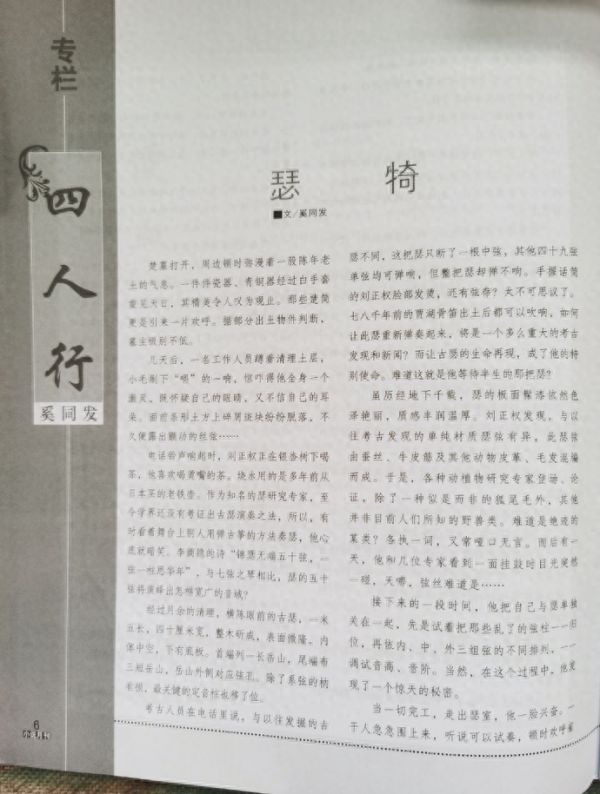 专栏
四人行
奚同发
瑟 犄
■文/奚同发
楚墓打开，周边顿时弥漫着一股陈年老
土的气息。一件件瓷器、青铜器经过白手套
重见天日，其精美令人叹为观止。那些楚简
更是引来一片欢呼。据部分出土物件判断，
墓主级别不低。
几天后，一名工作人员蹲着清理土层，
小毛刷下“嗯”的一响，惊吓得他全身一个
激灵，既怀疑自己的眼睛，又不信自己的耳
朵。面前条形土方上碎屑斑块纷纷脱落，不
久便露出颤动的丝弦……
电话铃声响起时，刘正权正在银杏树下喝
茶，他喜欢喝黄嘴的茶。烧水用的是多年前从
日本买的老铁壶。作为知名的瑟研究专家，至
今学界还没有考证出古瑟演奏之法，所以，有
时看着舞台上别人用弹古筝的方法奏瑟，他心
底就暗笑。李商隐的诗“锦瑟无端五十弦，一
弦一柱思华年”，与七弦之琴相比，瑟的五十
弦将演绎出怎样宽广的音域？
经过月余的清理，横陈眼前的古瑟，一米
五长，四十厘米宽，整木斫成，表面微隆。内
体中空，下有底板。首端列一长岳山，尾端布
三短岳山，岳山外侧对应弦孔。除了系弦的枘
考古人员在电话里说，与以往发掘的古
瑟不同，这把瑟只断了一根中弦，其他四十九张
单弦均可弹响，但整把瑟却弹不响。手握话筒
的刘正权脸部发烫，还有弦存？太不可思议了。
七八千年前的贾湖骨笛出土后都可以吹响，如何
让此瑟重新弹奏起来，将是一个多么重大的考古
发现和新闻？而让古瑟的生命再现，成了他的特
别使命。难道这就是他等待半生的那把瑟？
虽历经地下千载，瑟的板面髹漆依然色
泽艳丽，质感丰润温厚。刘正权发现，与以
往考古发现的单纯材质瑟弦有异，此瑟弦
由蚕丝、牛皮筋及其他动物皮革、毛发混编
而成。于是，各种动植物研究专家登场、论
证，除了一种似是而非的狐尾毛外，其他
并非目前人们所知的野兽类。难道是绝迹的
某类？各执一词，又常哑口无言。雨后有一
天，他和几位专家看到一面挂鼓时目光突然
一碰，天哪，弦丝难道是……
接下来的一段时间，他把自己与瑟单独
关在一起，先是试着把那些乱了的弦柱一一归
位，再弦内、中、外三组弦的不同排列，一一
调试音高、音阶。当然，在这个过程中，他发
现了一个惊天的秘密。
当一切完工，走出瑟室，他一脸兴奋。一
干人急急围上来，听说可以试奏，顿时欢呼雀
6
小说月刊